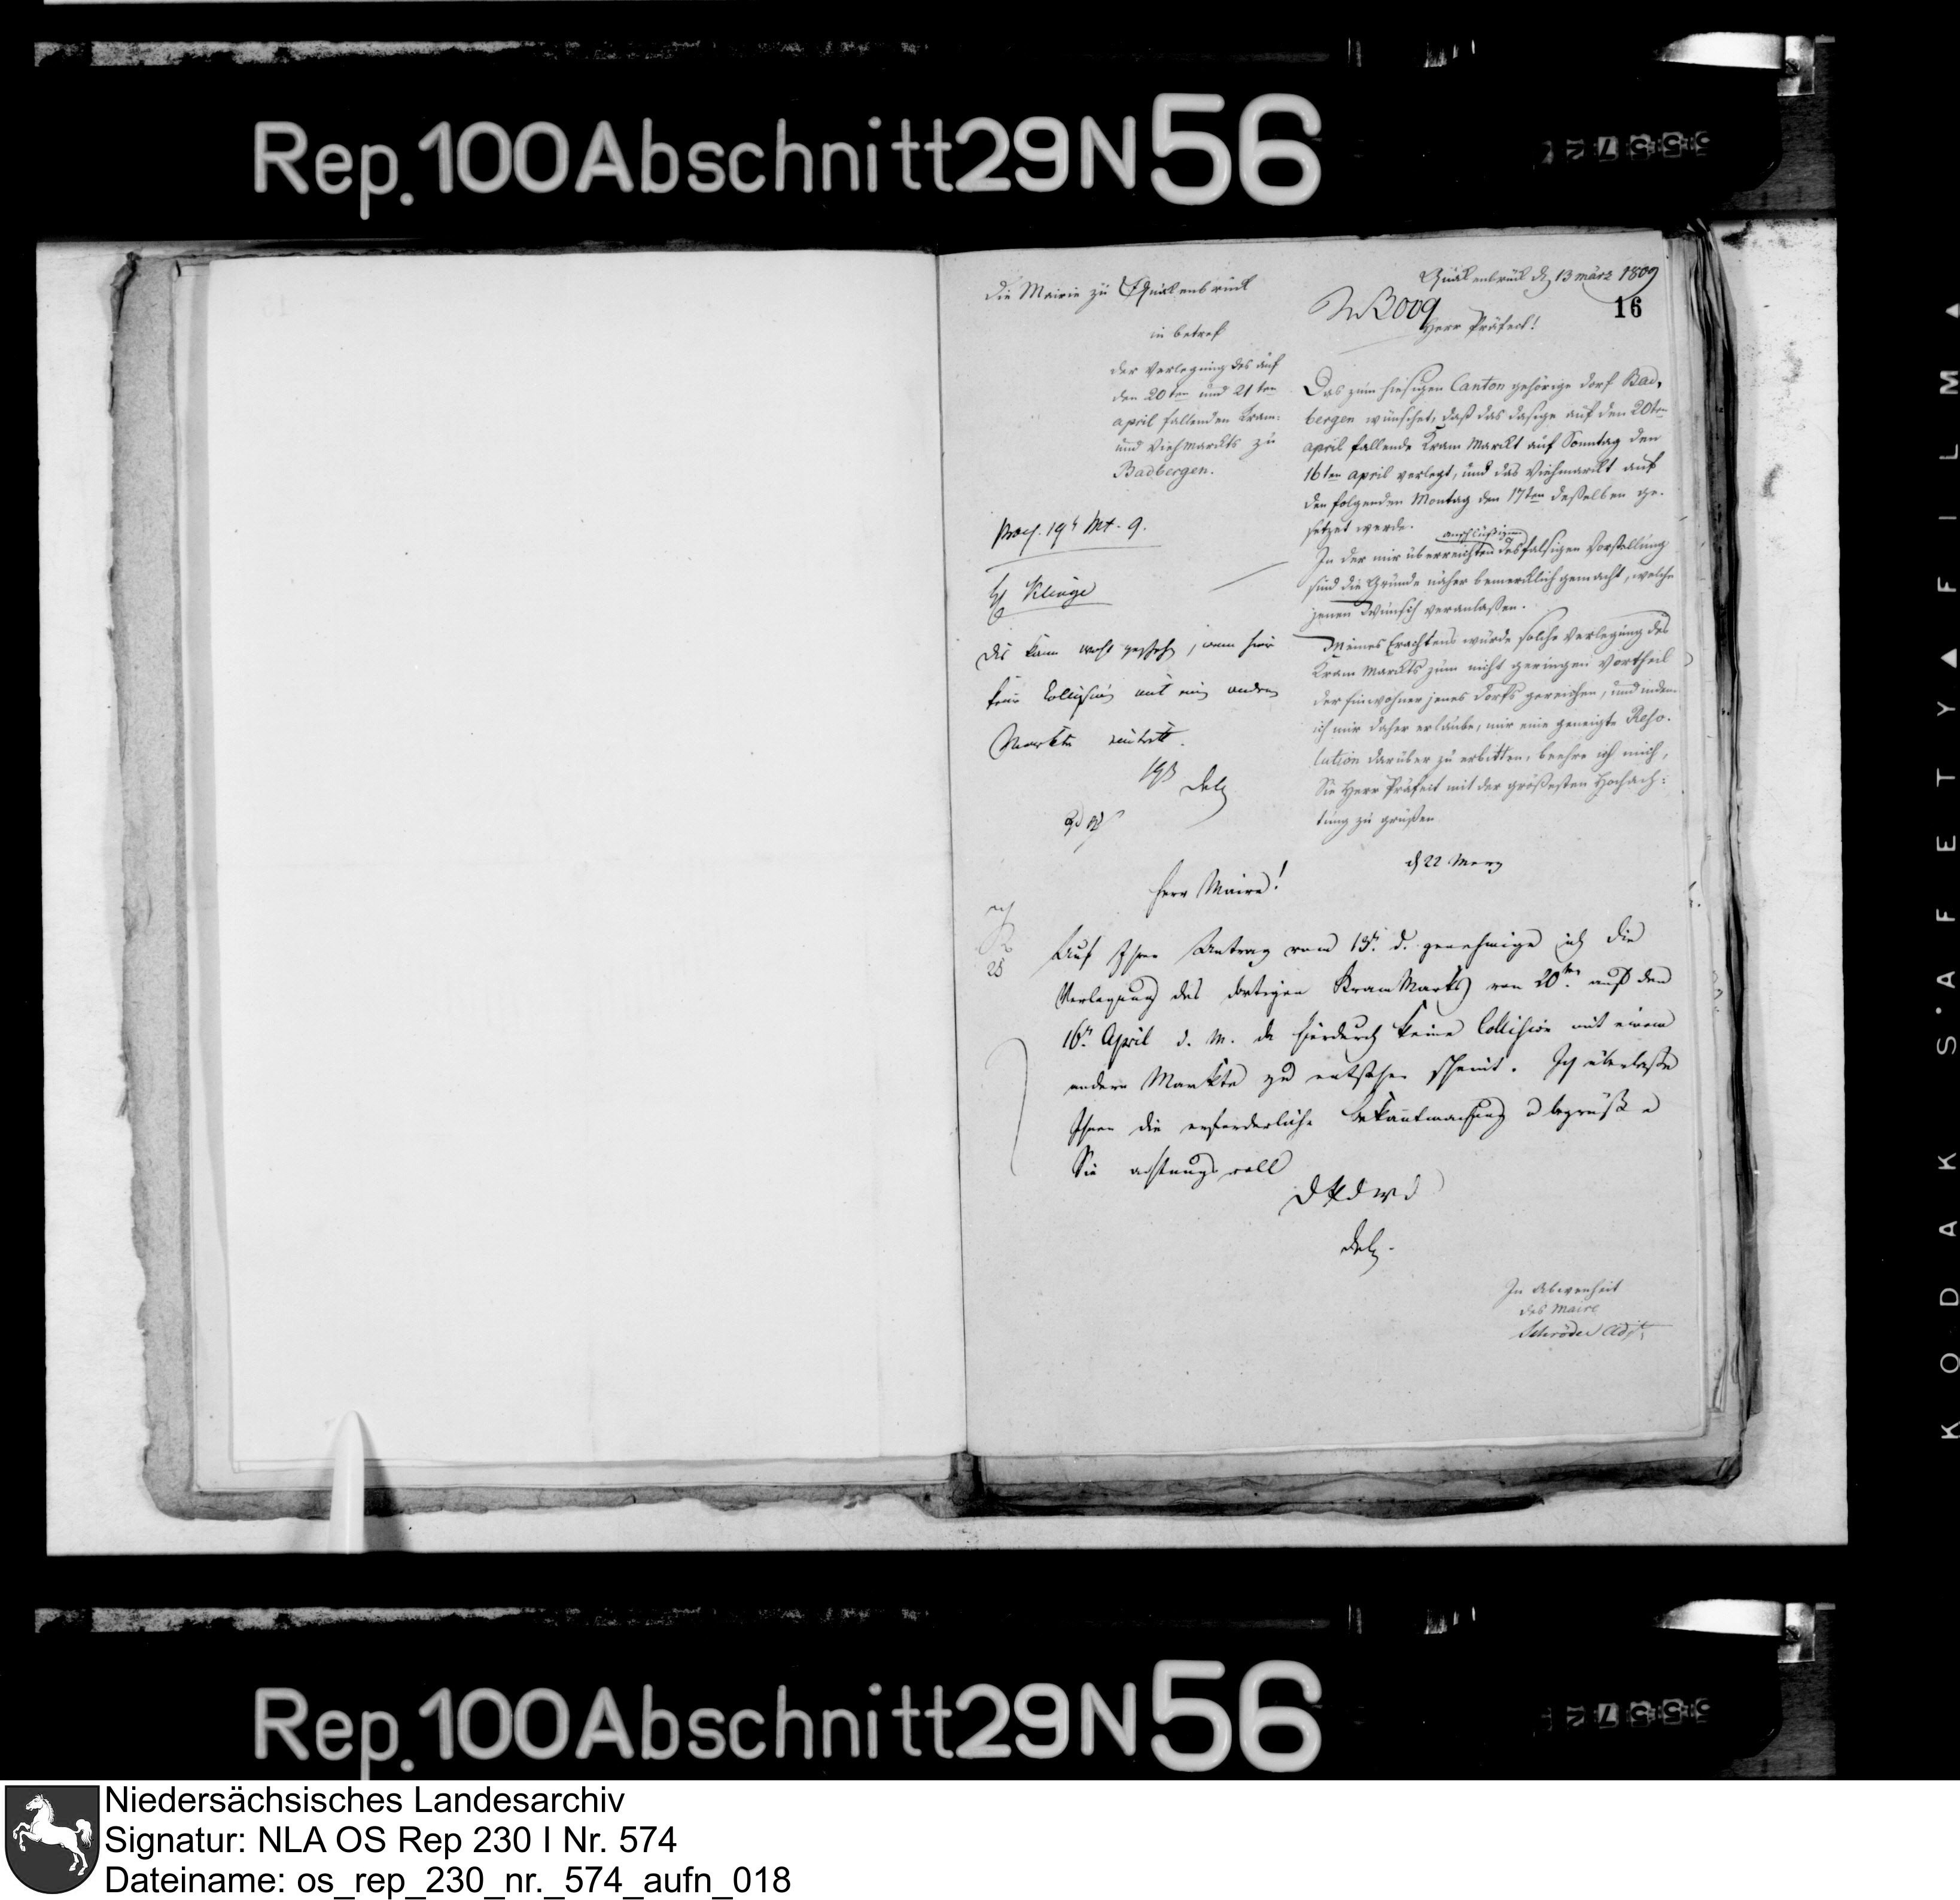 Rep. 100 Abschnitt 29 N 56
Die Mairie zu Quakenbrück
in betref
der Verlegung des auf
den 20ten und 21ten
april fallenden Kram-
und Viehmarckts zu
Badbergen.
Quakenbrück d. 13 märz 1809
16
Herr Präfect!
Das zum hiesigen Canton gehörige dorf Bad,
bergen wünschet, daß das dasige auf den 20ten
april fallende Kram Marckt auf Sonntag den
16ten april verlegt, und das Viehmarckt auf
den folgenden Montag den 17ten desselben ge-
setzet werde.
anschlüßigen
In der mir überreichten desfalsigen Vorstellung
sind die Gründe näher bemercklich gemacht, welche
jenen Wunsch veranlaßen.
Meines Erachtens würde solche Verlegung des
Kram Marckts zum nicht geringen Vortheil
der Einwohner jenes Dorfs gereichen, und indem
ich mir daher erlaube, mir eine geneigte Reso-
lution darüber zu erbitten, beehre ich mich,
Sie Herr Präfect mit der größesten Hochach-
tung zu grüßen
H Klinge
Dis kann wohl geschehen, wenn hier
keine Collision mit einem andern
Markte eintritt.
d 22 Merz
Herr Maire!
Auf Ihren Antrag vom 13t. d. genehmige ich die
Verlegung des dortigen KramMarkts von 20ten auf den
16t. April d. M. da hierdurch keine Collision mit einem
andern Markte zu entstehen scheint. Ich überlasse
Ihnen die erforderliche Bekanntmachung u begrüße
Sie achtungsvoll
In Abwenheit
des Maire
Schröder Adjt.
KODAK SAFETY FILM
Rep. 100 Abschnitt 29 N 56
Niedersächsisches Landesarchiv
Signatur: NLA OS Rep 230 I Nr. 574
Dateiname: os_rep_230_nr._574_aufn_018